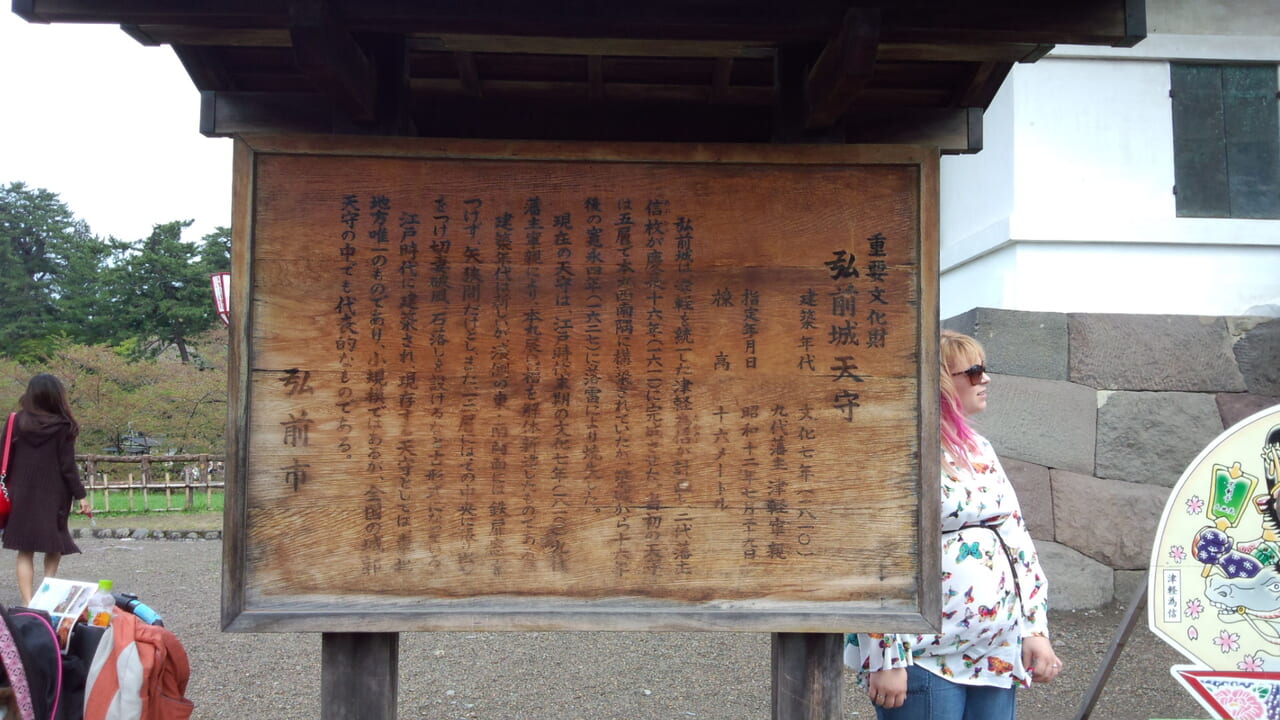 重要文化財
弘前城天守
建築年代 文化七年(一八一〇)
九代藩主 津軽寧親
指定年月日 昭和十二年七月二十九日
棟高 十六メートル
弘前城は津軽を統一した津軽為信が計画し、二代藩主
信枚が慶長十六年(一六一一)に完成させた。当初の天守
は五層で本丸西南隅に構築されていたが、築城から十六年
後の寛永四年(一六二七)に落雷により焼失した。
現在の天守は、江戸時代末期の文化七年(一八一〇)九代
藩主寧親により、本丸
建築年代は新しいが、濠側の東・南両面には
つけず、矢狭間だけとし、また一・二層にはその中央に張出し
をつけ切妻破風、石落しを設けるなど
江戸時代に建築され、現存する天守としては東北
地方唯一のものであり、小規模ではあるが、全国の城郭
天守の中でも代表的なものである。
弘前市
津軽為信